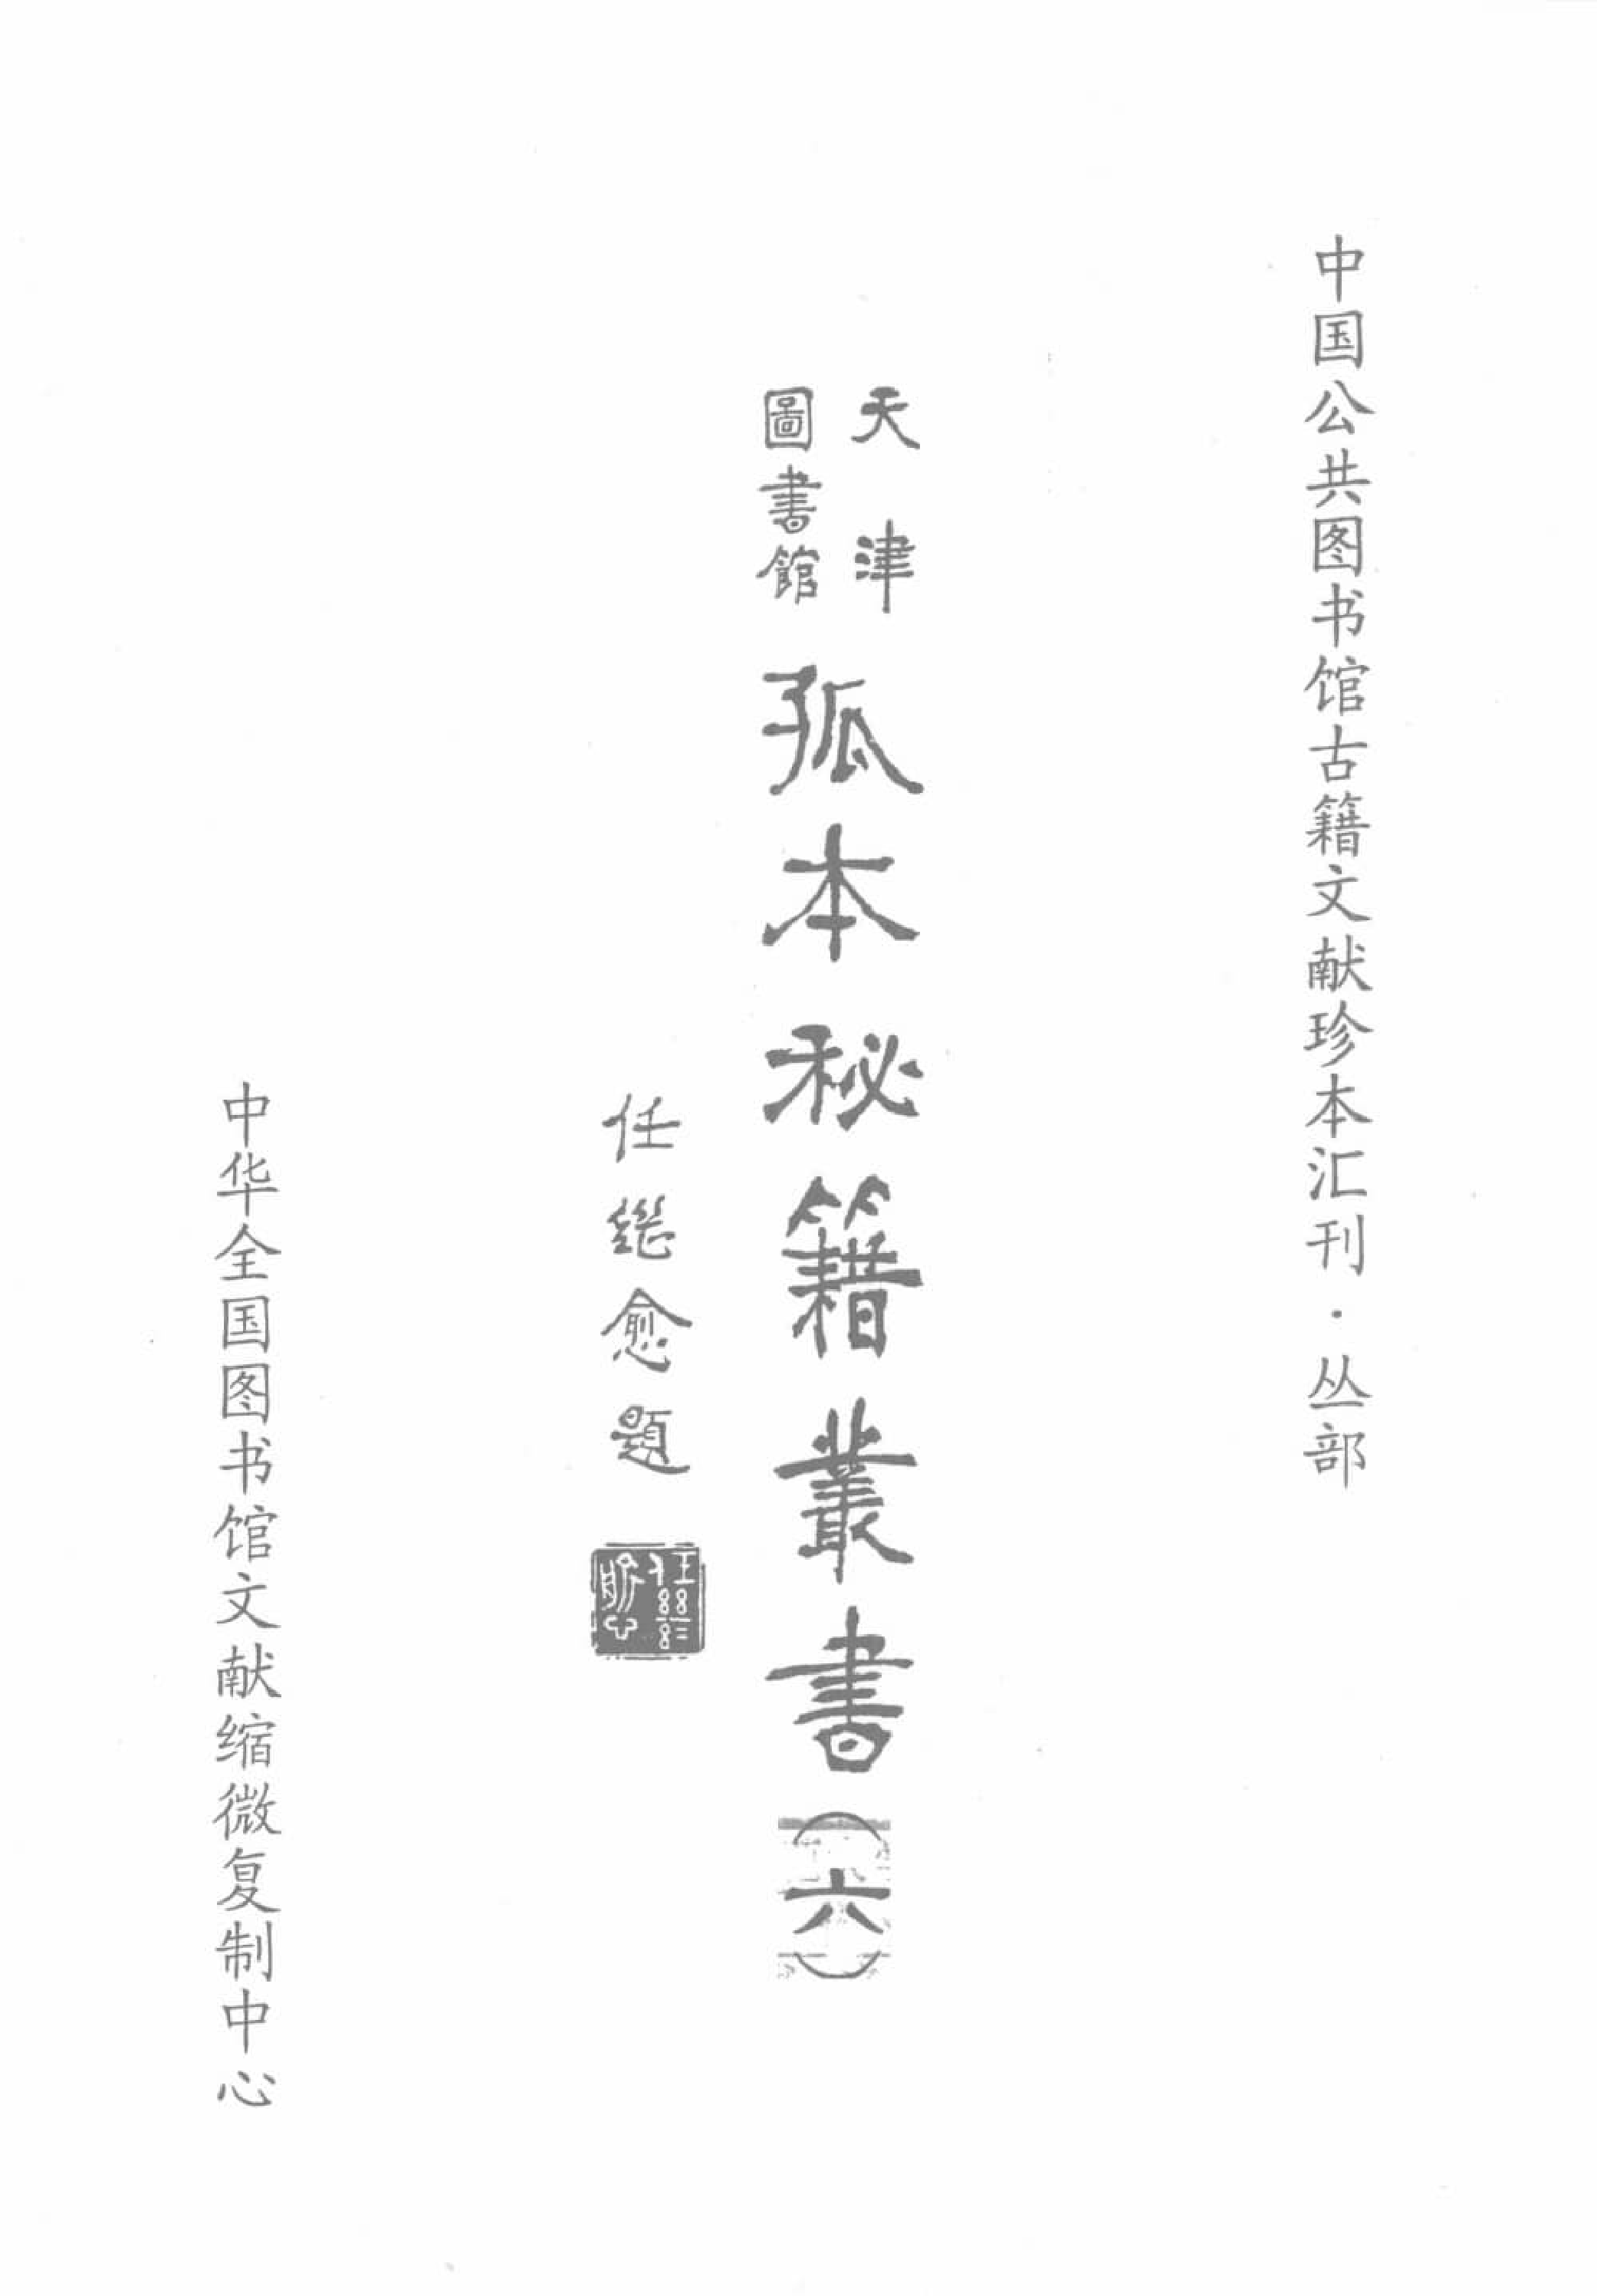 中国公共图书馆古籍文献珍本汇刊·丛部
天津
圖書館
孤本秘籍叢書(六)
任继愈題
任继愈
中华全国图书馆文献缩微复制中心